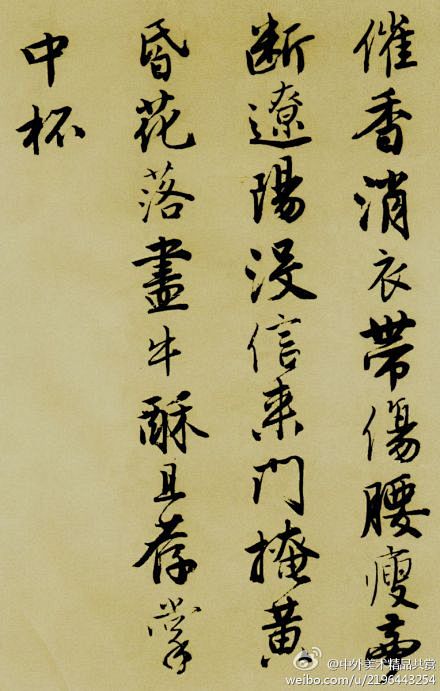 催香消衣帶傷腰瘦
断遼陽没信来門掩黄
昏花落盡牛酥且荐掌
中杯
@中外美术精品共赏
weibo.com/u/2196443254